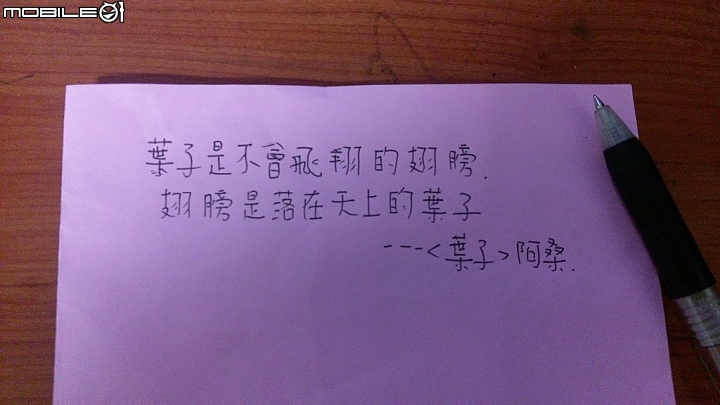 MOBILE01
葉子是不曾飛翔的翅膀.
翅膀是落在天上的葉子
---<葉子>阿桑.